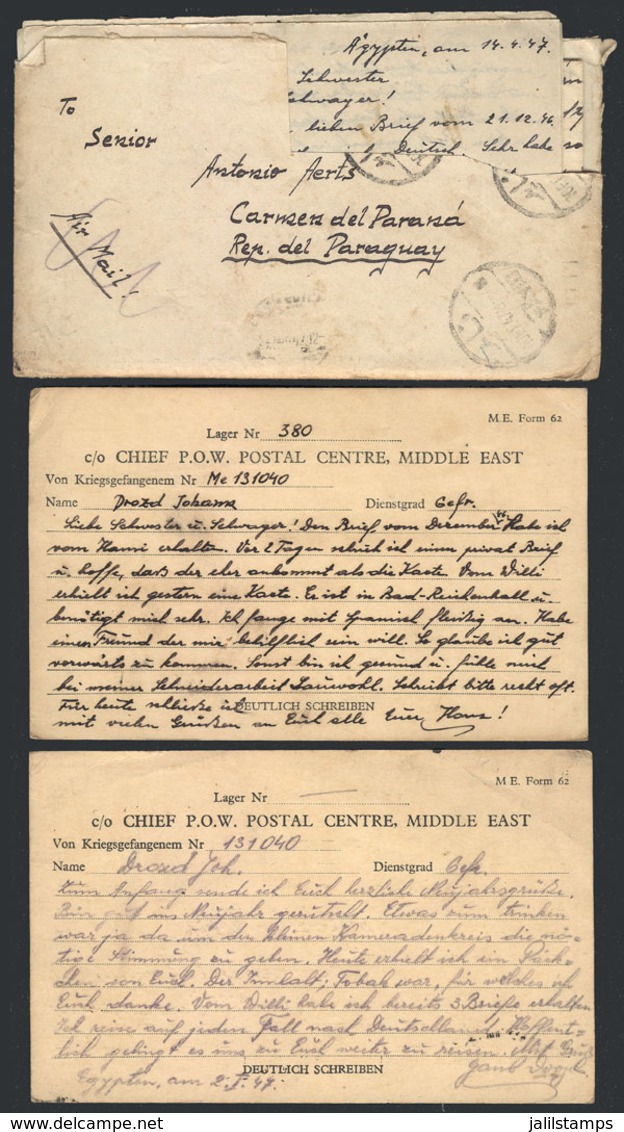 Ägypten, am 14.4.47.
Schwester
Schwager!
lieben Brief vom 21.12.46
Deutsch. Sehr habe
so
To
Senior
Antonio Aerts
Carmen del Paraná
Rep. del Paraguay
Air Mail!
M.E. Form 62
Lager Nr 380
c/o CHIEF P.O.W. POSTAL CENTRE, MIDDLE EAST
Von Kriegsgefangenem Nr Me 131040
Name Drozd Johann Dienstgrad Gefr.
Liebe Schwester u. Schwager! Den Brief vom Dezember 46 habe ich
vom Hami erhalten. Vor 2 Tagen schrieb ich einen privat Brief
u. hoffe, daß der eher ankommt als die Karte. Vom Willi
erhielt ich gestern eine Karte. Er ist in Bad-Reichenhall u.
benötigt mich sehr. Ich fange mit Spanisch fleißig an. Habe
einen Freund der mir behilflich sein will. So glaube ich gut
vorwärts zu kommen. Sonst bin ich gesund u. fühle mich
bei meiner Schneiderarbeit Sauwohl. Schreibt bitte recht oft.
Für heute schließe ich
DEUTLICH SCHREIBEN
mit vielen Grüßen an Euch alle Euer Hans!
M E. Form 62
Lager Nr
c/o CHIEF P.O.W. POSTAL CENTRE, MIDDLE EAST
Von Kriegsgefangenem Nr 131040
Name Drozd Joh. Dienstgrad Gefr.
Zum Anfang sende ich Euch herzliche Neujahrsgrüße.
Bin gut ins Neujahr gerutscht. Etwas zum trinken
war ja da um den kleinen Kameradenkreis die nö-
tige Stimmung zu geben. Heute erhielt ich ein Päck-
chen von Euch. Der Innhalt; Tobak war, für welches ich
Euch danke. Vom Willi habe ich bereits 3 Briefe erhalten
Ich reise auf jeden Fall nach Deutschland, Hoffent-
lich gelingt es uns zu Euch weiter zu reisen. Mit
DEUTLICH SCHREIBEN
Egypten, am 2.I.47.
jalilstamps